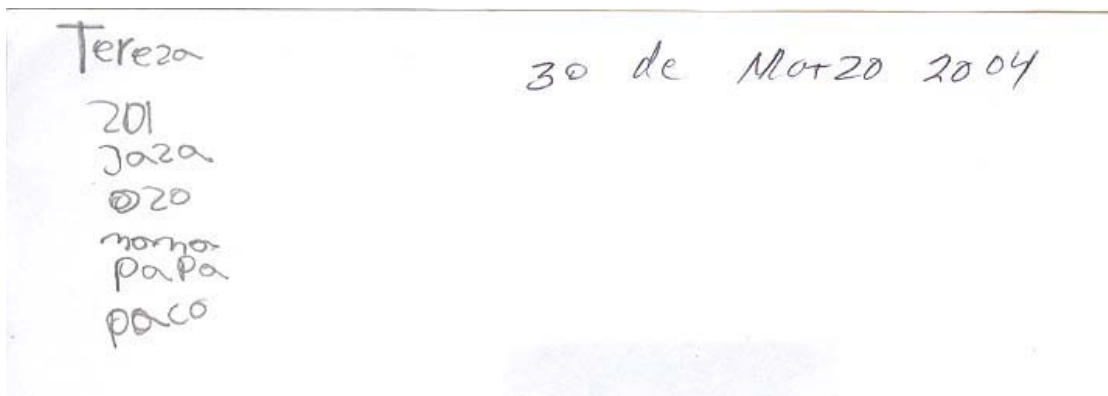 Tereza 30 de Marzo 2004
zol
Jaza
ozo
mama
PaPa
paco